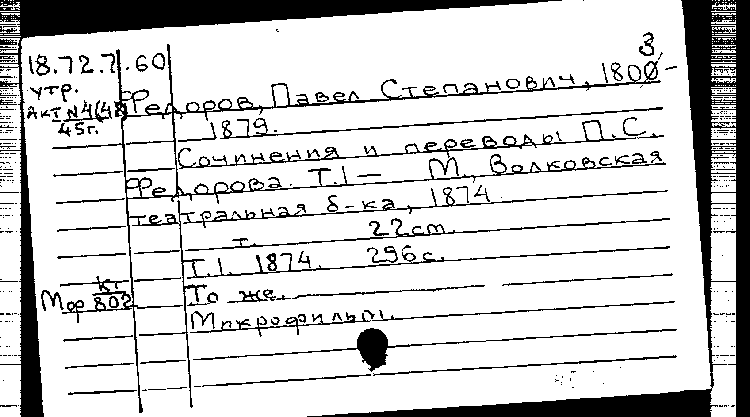 18.72.7.60
утр.
Акт N4(48)
45г.
Федоров, Павел Степанович, 1800-
3
1879.
Сочинения и переводы П.С.
Федорова. Т.1 — М., Волковская
театральная б-ка, 1874.
т. 22cm.
Т.1. 1874. 296с.
То же.
Микрофильм.
Мфр кг
802